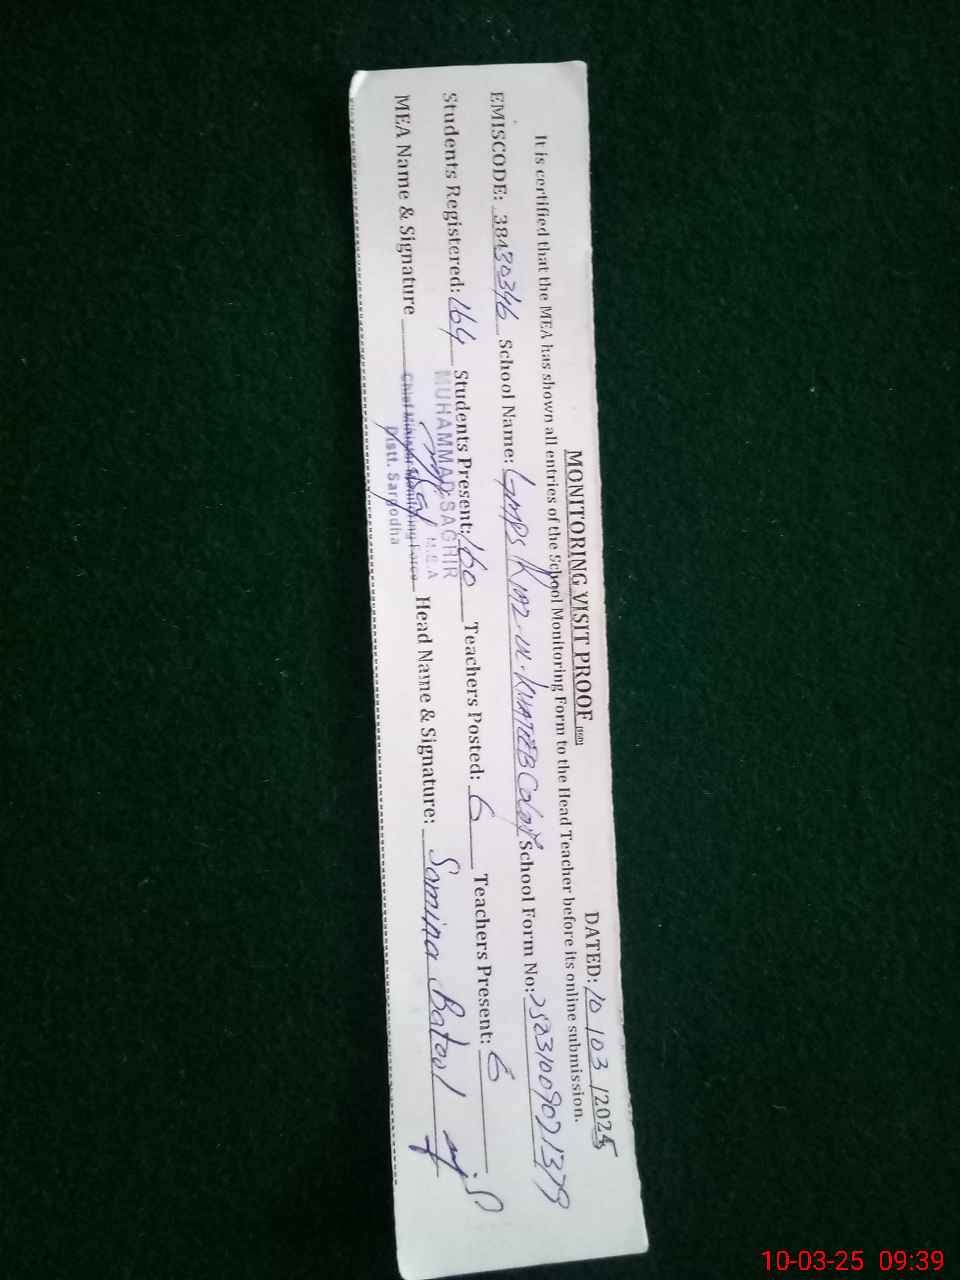 MONITORING VISIT PROOF (SGD)
DATED: 10/03/2025
It is certified that the MEA has shown all entries of the School Monitoring Form to the Head Teacher before its online submission.
EMISCODE: 38430346 School Name: GMPS Riaz-ul-KHATEEB Colony School Form No: 25031009021379
Students Registered: 164 Students Present: 160 Teachers Posted: 6 Teachers Present: 6
MUHAMMAD SAGHIR
M.E.A
MEA Name & Signature Head Name & Signature: Samina Batool
Chief Minister Monitoring Force
Distt. Sargodha
10-03-25 09:39